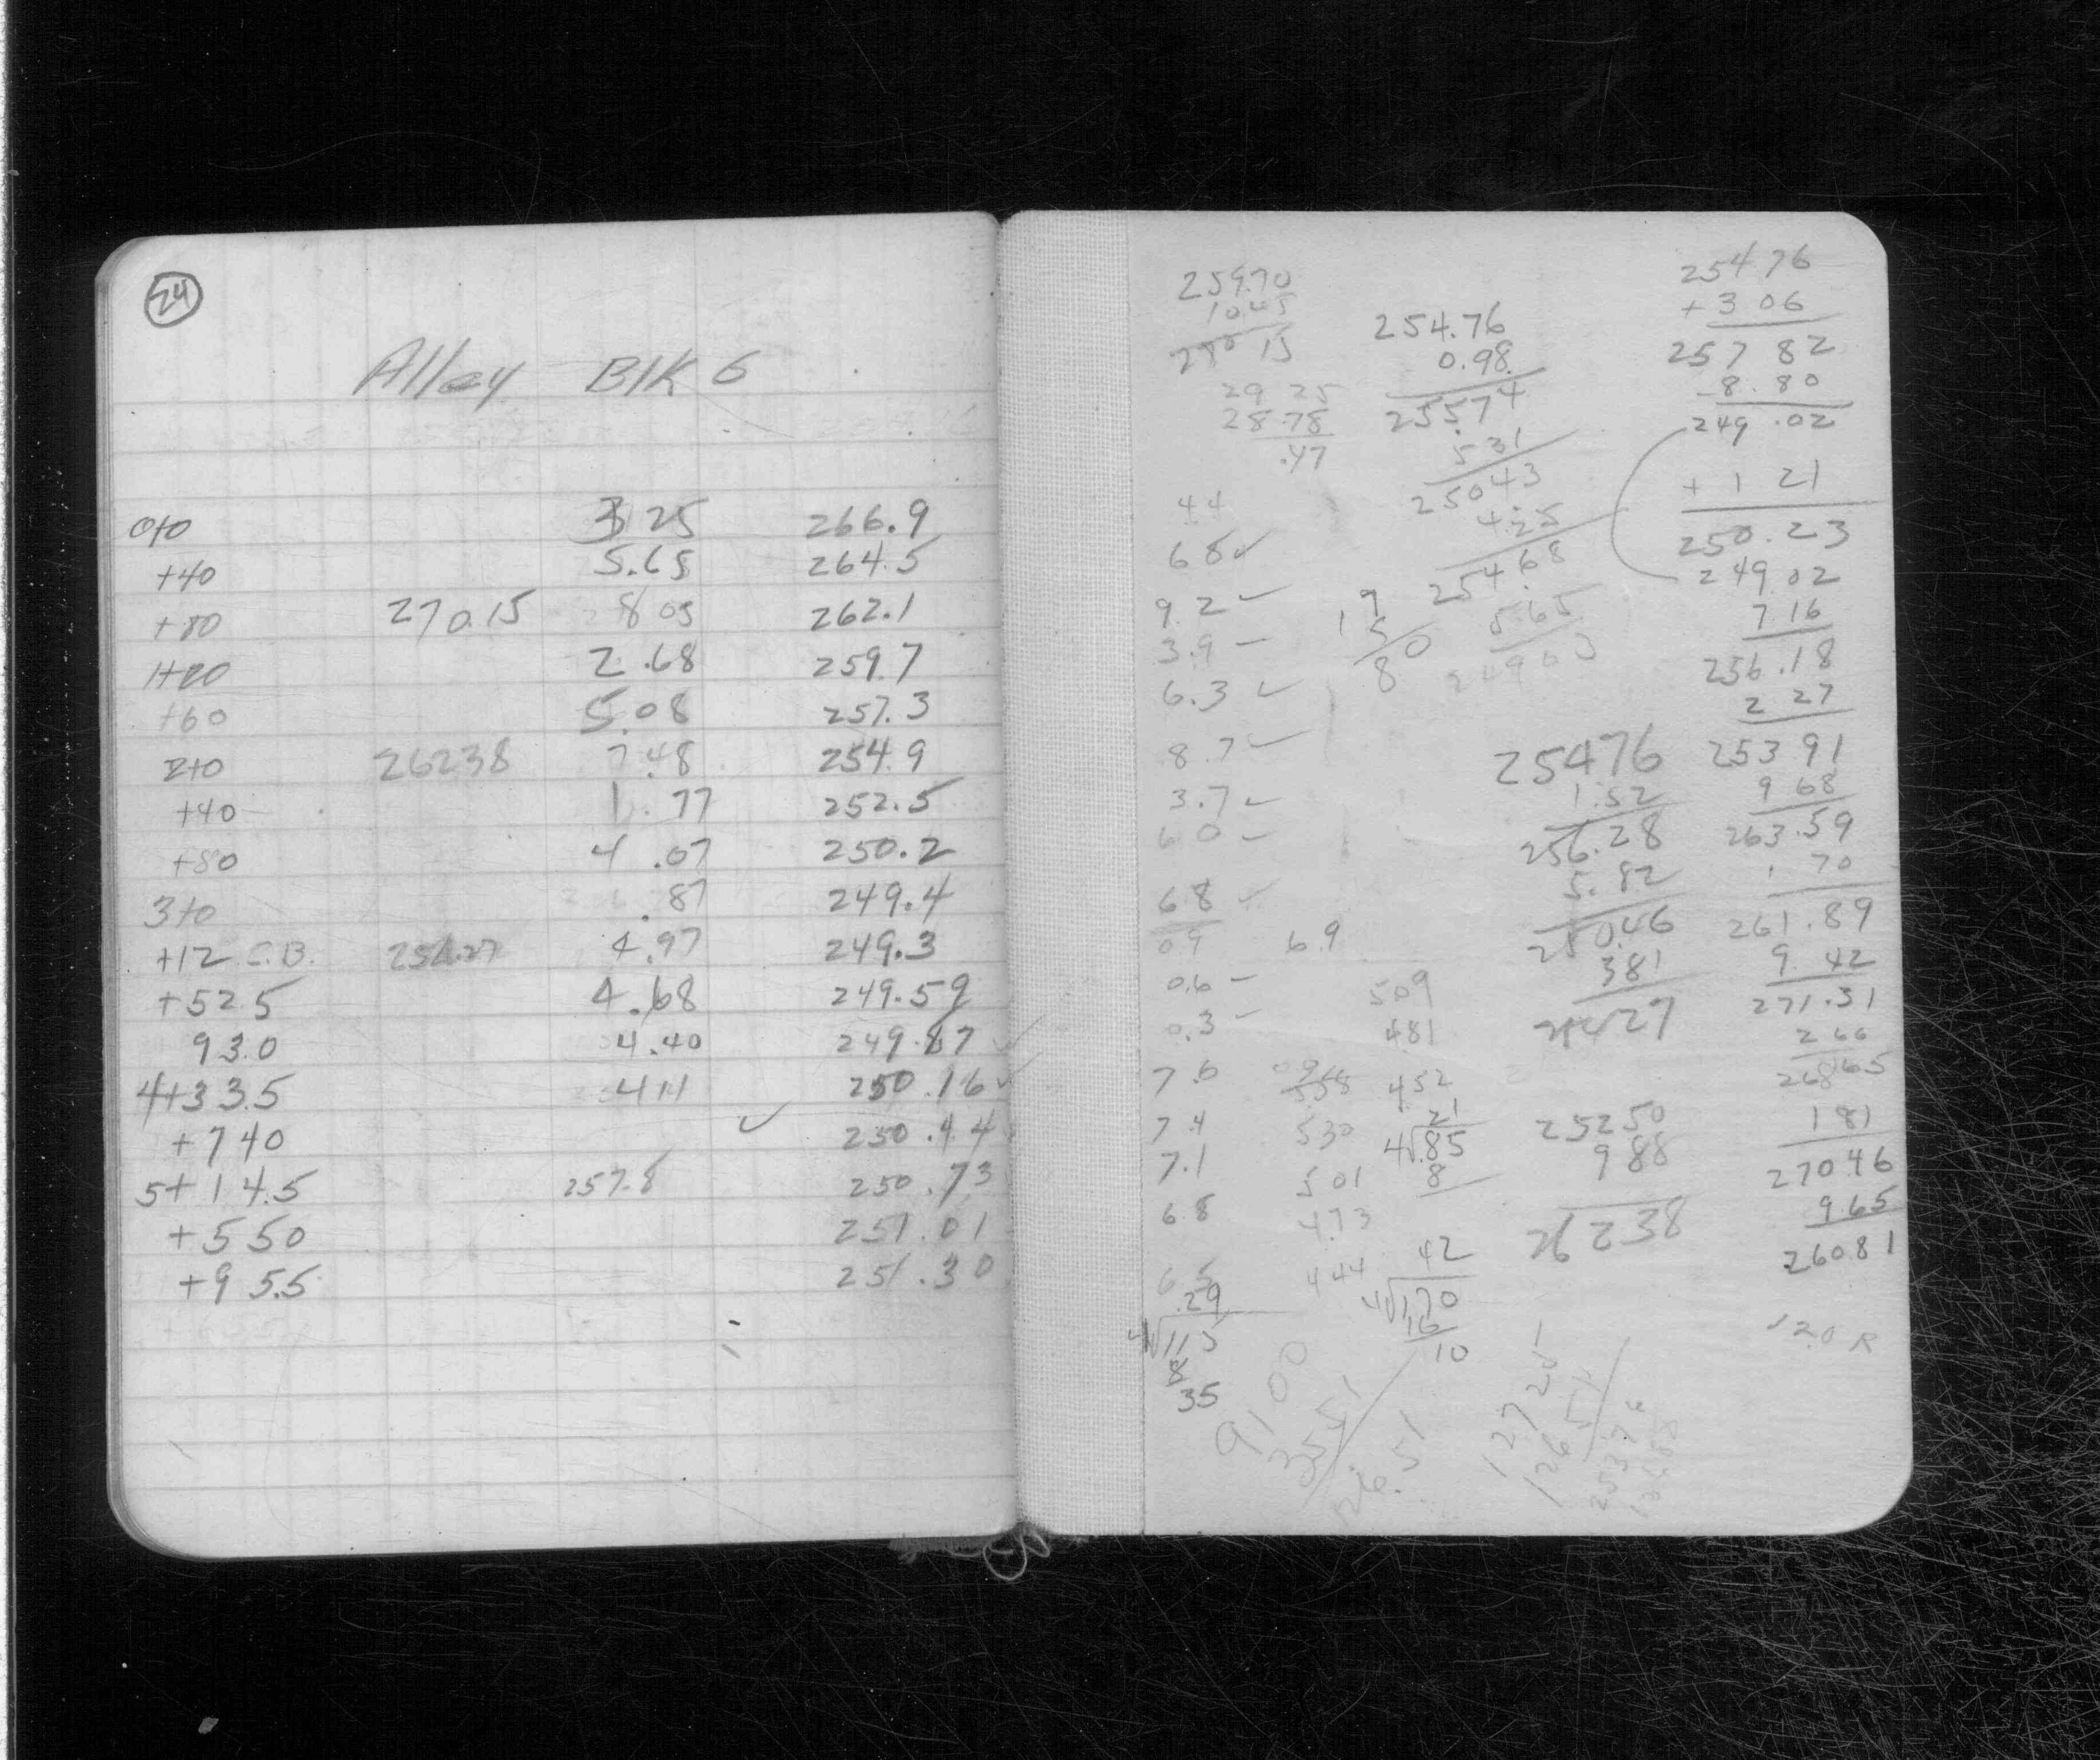 24
Alley Blk 6
0+0 3 25 266.9
+40 5.65 264.5
+80 270.15 8 05 262.1
1+20 2.68 259.7
+60 5.08 257.3
2+0 26238 7.48 254.9
+40 1.77 252.5
+80 4.07 250.2
3+0 .87 249.4
+12 C.B. 254.27 4.97 249.3
+52 5 4.68 249.59
93.0 4.40 249.87 ✓
4+33.5 4 11 250.16 ✓
+740 ✓ 250.44
5+14.5 257.8 250.73
+550 251.01
+9 5.5 251.30
259.70
10 45
270 15
29 25
28.78
.47
44
68 ✓
9.2 ✓
3.9 -
6.3 ✓
8.7 ✓
3.7 ✓
6.0 -
68 ✓
09 6.9
0.6 -
0.3 -
7.6
7.4
7.1
68
6 5
.29
4√115
8
35
254.76
0.98
255.74
531
25043
4.25
254.68
5.65
249 03
19
5
80
25476
1.52
256.28
5.82
250.46
381
27
509
481
558 452
530
501
473
444
21
4√.85
8
42
4√170
16
10
25250
988
26238
254 76
+ 3 06
257 82
-8.80
249.02
+ 1 21
250.23
249 02
7 16
256.18
2 27
253 91
9 68
263.59
1 70
261.89
9 42
271.31
2 66
26865
1 81
27046
965
26081
120 R
9100
3551
126.51
127 25
126 51
25376